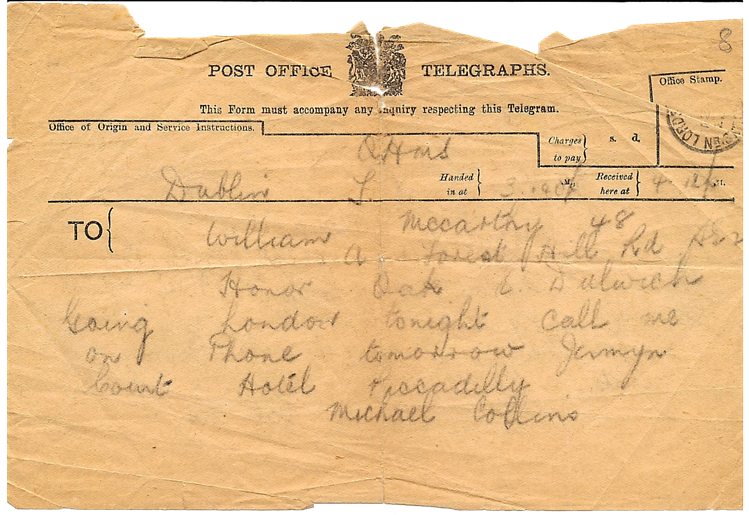 8
POST OFFICE TELEGRAPHS.
Office Stamp.
This Form must accompany any inquiry respecting this Telegram.
Office of Origin and Service Instructions.
OHMS
Charges to pay
s. d.
Dublin
Handed in at
3.40
Received here at
4.12
TO
William McCarthy 48
A Forest Hill Rd
Honor Oak E. Dulwich
Going London tonight call me
on Phone tomorrow Jermyn
Court Hotel Piccadilly
Michael Collins